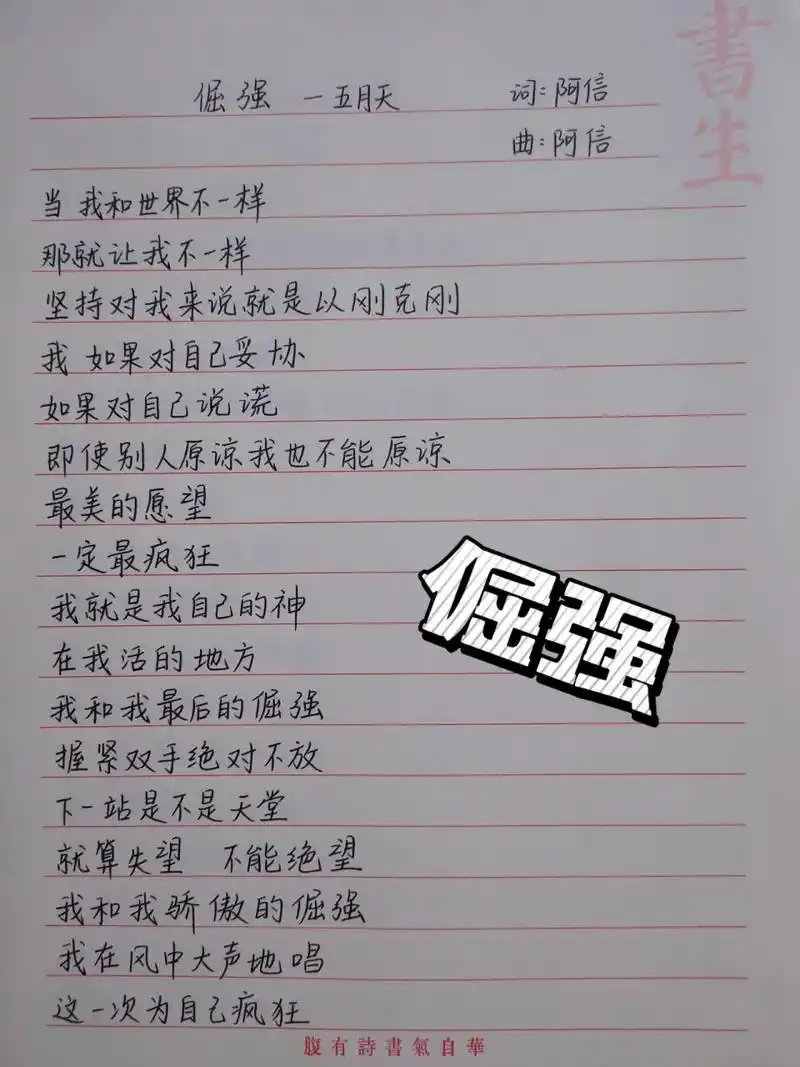 書生
倔强 一五月天 词:阿信
曲:阿信
当我和世界不一样
那就让我不一样
坚持对我来说就是以刚克刚
我 如果对自己妥协
如果对自己说谎
即使别人原谅我也不能原谅
最美的愿望
一定最疯狂
我就是我自己的神
在我活的地方
我和我最后的倔强
握紧双手绝对不放
下一站是不是天堂
就算失望 不能绝望
我和我骄傲的倔强
我在风中大声地唱
这一次为自己疯狂
倔强
腹有詩書氣自華